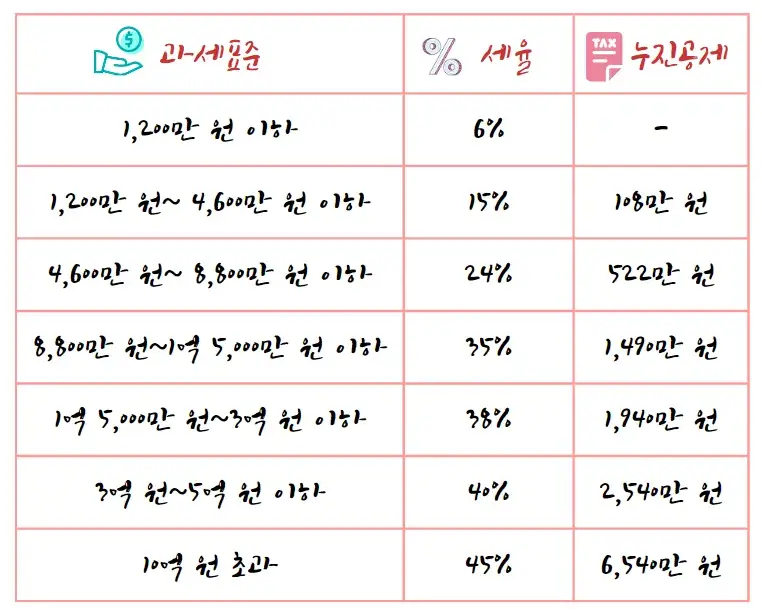 과세표준 % 세율 TAX 누진공제
1,200만 원 이하 6% -
1,200만 원~ 4,600만 원 이하 15% 108만 원
4,600만 원~ 8,800만 원 이하 24% 522만 원
8,800만 원~1억 5,000만 원 이하 35% 1,490만 원
1억 5,000만 원~3억 원 이하 38% 1,940만 원
3억 원~5억 원 이하 40% 2,540만 원
10억 원 초과 45% 6,540만 원